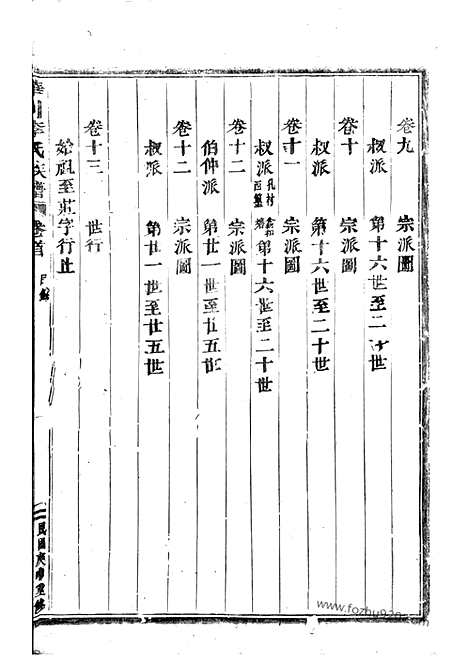 卷九 宗派圖
叔派 第十六世至二十世
卷十 宗派圖
叔派 第十六世至二十世
卷十一 宗派圖
叔派 孔村 西 第十六世至二十世
卷十二 宗派圖
伯仲派 第廿一世至廿五世
卷十二 宗派圖
叔派 第廿一世至廿五世
卷十三 世行
始祖至 字行止
李氏族譜 卷首 目錄
民國庚 重修
www.fozhu920.com